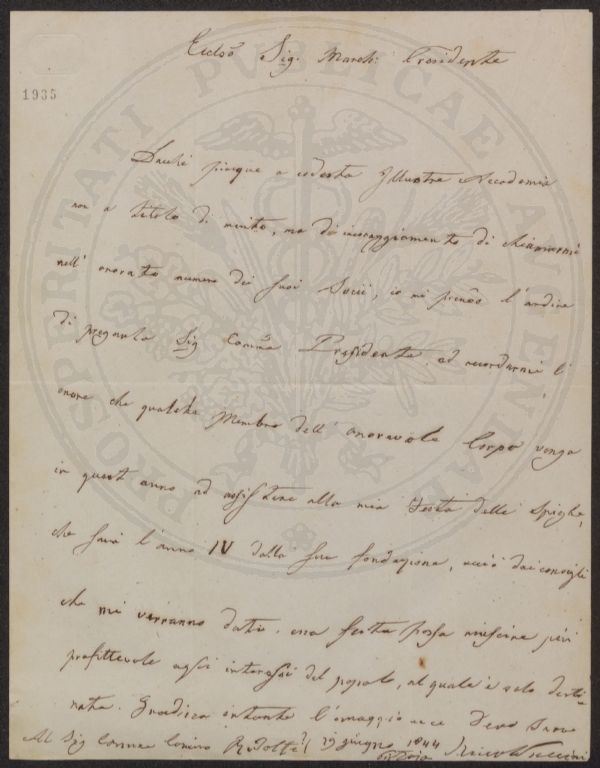 Sig. March. Presidente
1935
PROSPERITATI PUBLICAE
Dacchè piacque a codesta Illustre Accademia
non a titolo di merito, ma di incoraggiamento di chiamarmi
nell' onorato numero dei suoi Socii, io mi prendo l'ardire
di pregarla Sig Comm. Presidente ad accordarmi l'
onore che qualche Membro dell' onorevole Corpo venga
in quest anno ad assistere alla mia Festa delle Spighe,
che sarà l'anno IV dalla sua fondazione, acciò dai consigli
che mi verranno dati, essa festa possa riuscire più
profittevole agli interessi del popolo, al quale è solo desti-
nata. Gradisca intanto l'omaggio
Al Sig Comm Cosimo Ridolfi 19 giugno 1844